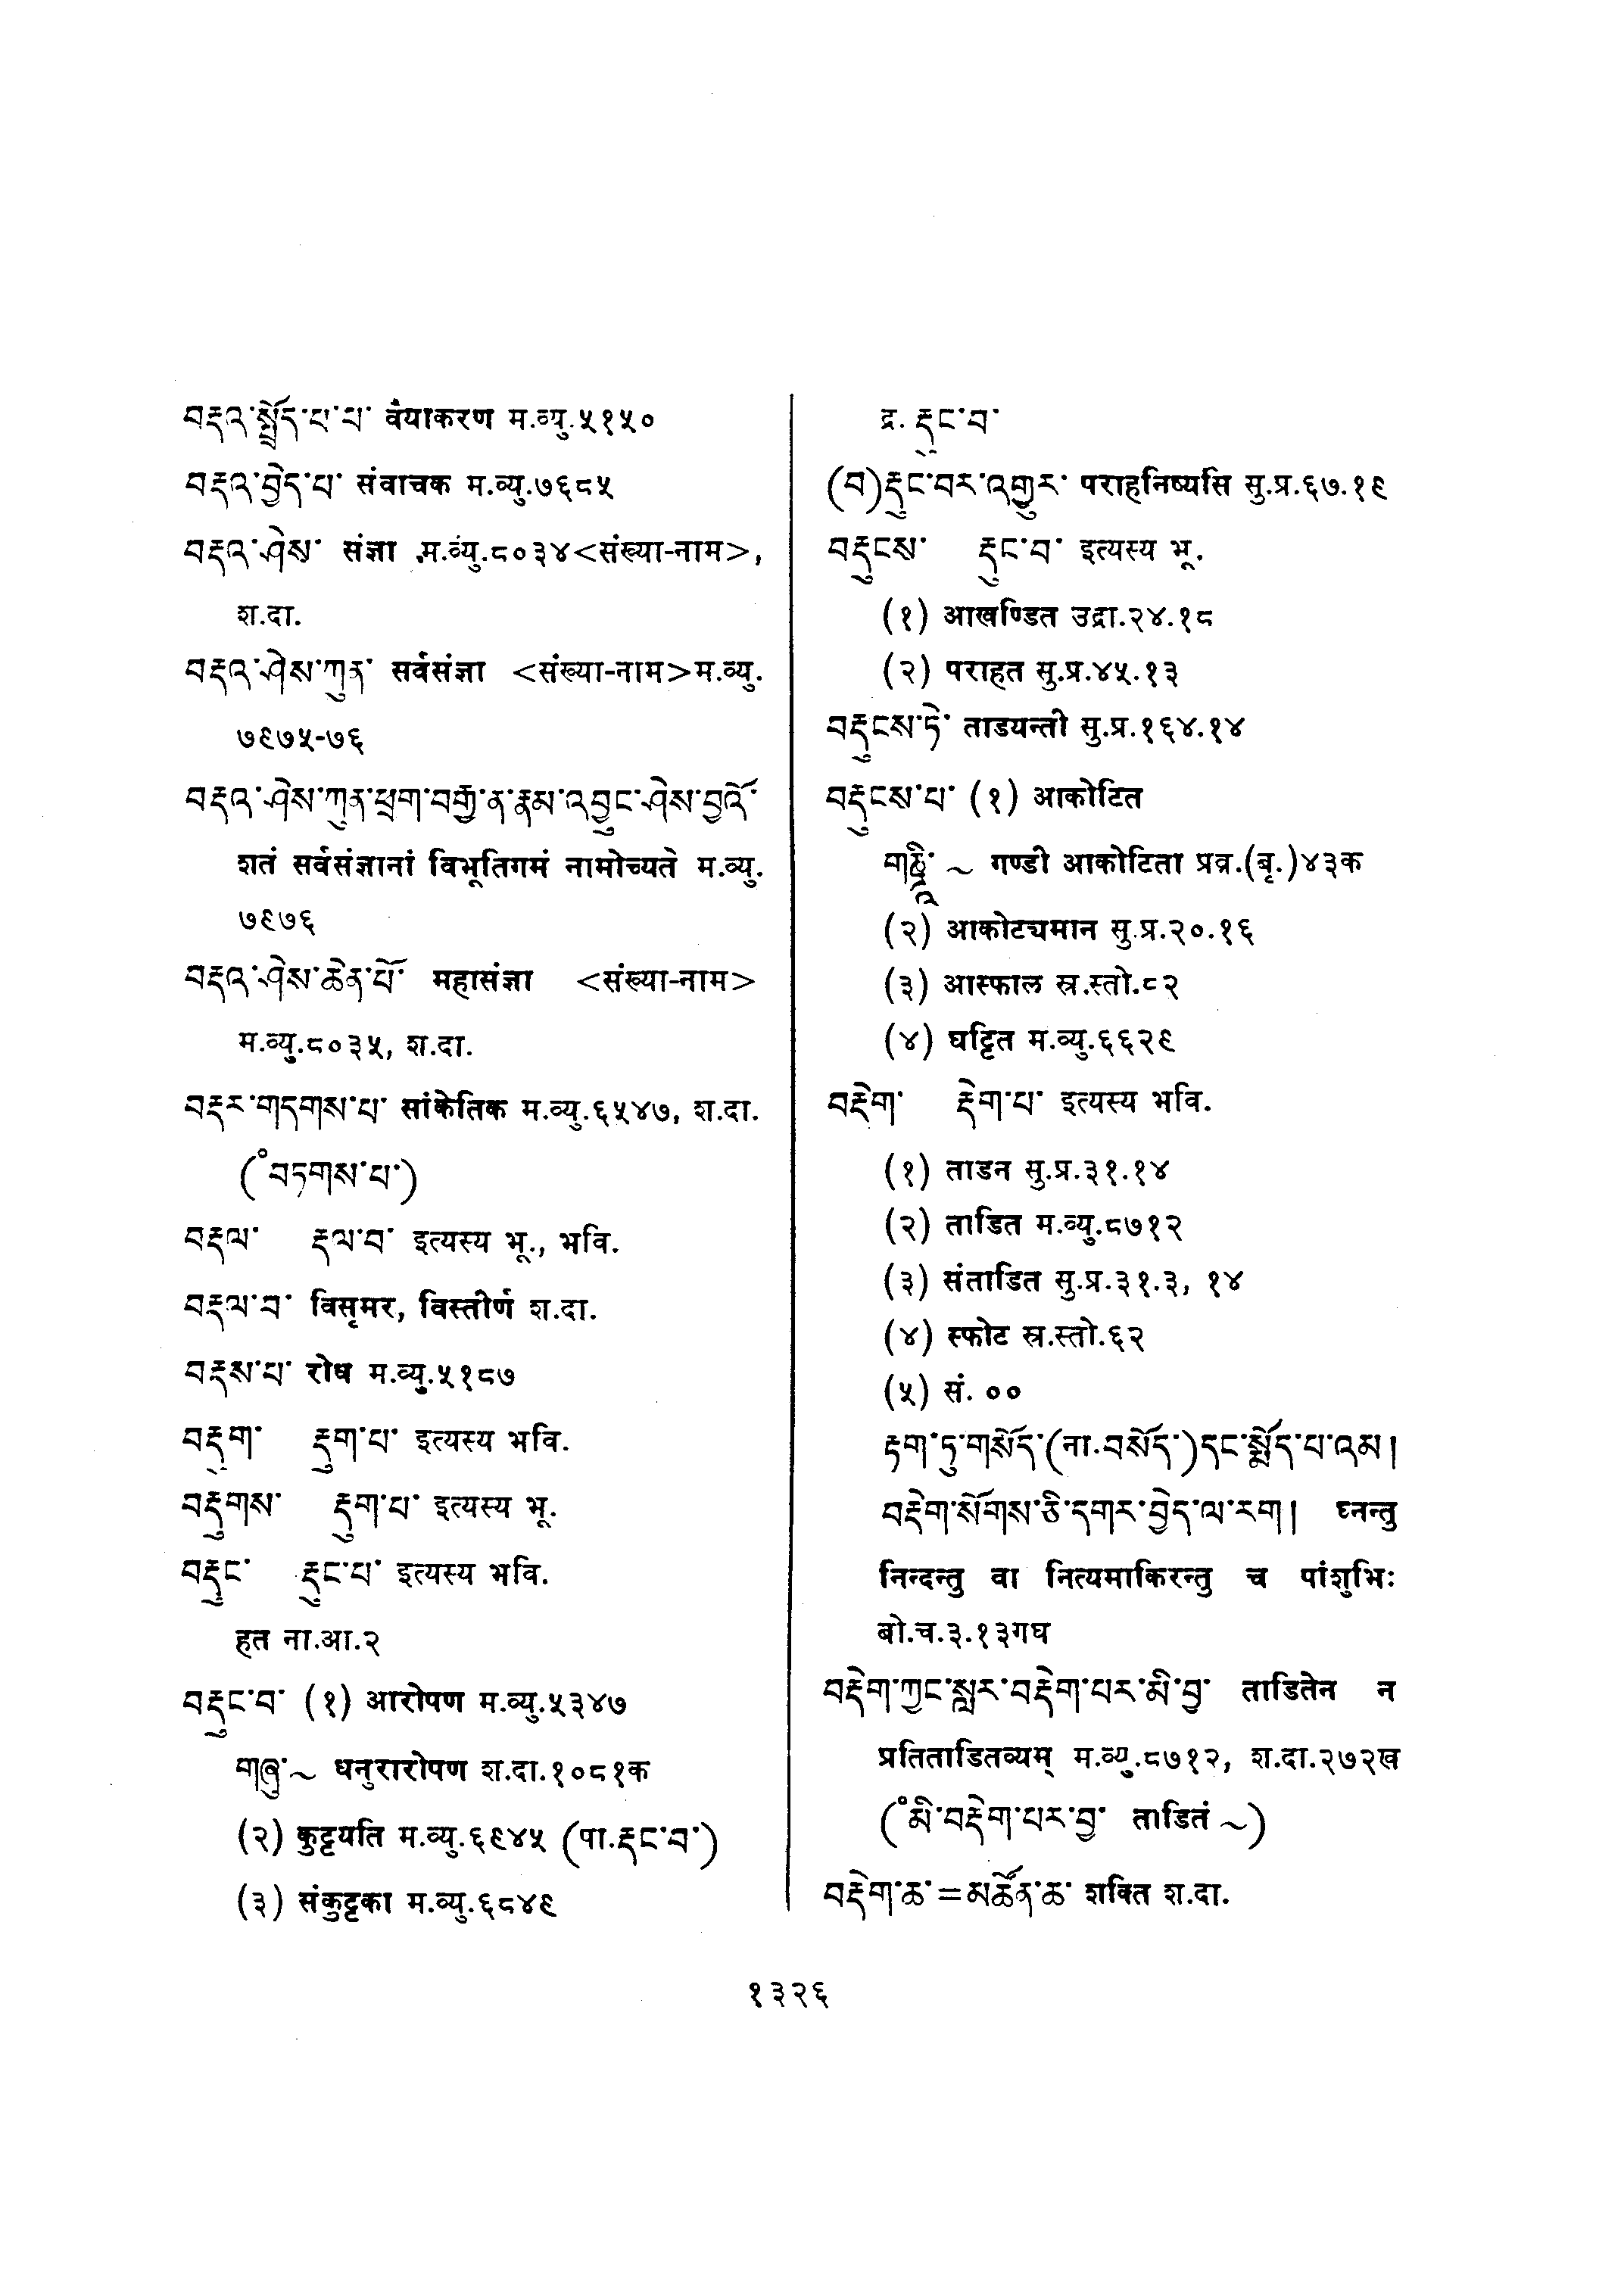 བརྡའ་སྤྲོད་པ་པ་ वैयाकरण म.व्यु.५१५०
བརྡའ་བྱེད་པ་ संवाचक म.व्यु.७६८५
བརྡའ་ཤེས་ संज्ञा म.व्यु.८०३४<संख्या-नाम>,
श.दा.
བརྡའ་ཤེས་ཀུན་ सर्वसंज्ञा <संख्या-नाम>म.व्यु.
७९७५-७६
བརྡའ་ཤེས་ཀུན་ཕྲག་བརྒྱ་ན་རྣམ་འབྱུང་ཤེས་བྱའོ་
शतं सर्वसंज्ञानां विभूतिगमं नामोच्यते म.व्यु.
७९७६
བརྡའ་ཤེས་ཆེན་པོ་ महासंज्ञा <संख्या-नाम>
म.व्यु.८०३५, श.दा.
བརྡར་གདགས་པ་ सांकेतिक म.व्यु.६५४७, श.दा.
(°བཏགས་པ་)
བརྡལ་ རྡལ་བ་ इत्यस्य भू., भवि.
བརྡལ་བ་ विसृमर, विस्तीर्ण श.दा.
བརྡས་པ་ रोध म.व्यु.५१८७
བརྡུག་ རྡུག་པ་ इत्यस्य भवि.
བརྡུགས་ རྡུག་པ་ इत्यस्य भू.
བརྡུང་ རྡུང་པ་ इत्यस्य भवि.
हत ना.आ.२
བརྡུང་བ་ (१) आरोपण म.व्यु.५३४७
གཞུ་~ धनुरारोपण श.दा.१०८१क
(२) कुट्टयति म.व्यु.६९४५ (पा.རྡང་བ་)
(३) संकुट्टका म.व्यु.६८४९
द्र. རྡུང་བ་
(བ)རྡུང་བར་འགྱུར་ पराहनिष्यसि सु.प्र.६७.१९
བརྡུངས་ རྡུང་བ་ इत्यस्य भू.
(१) आखण्डित उद्रा.२४.१८
(२) पराहत सु.प्र.४५.१३
བརྡུངས་ཏེ་ ताडयन्ती सु.प्र.१६४.१४
བརྡུངས་པ་ (१) आकोटित
གཎྜཱི་ ~ गण्डी आकोटिता प्रव्र.(बृ.)४३क
(२) आकोट्यमान सु.प्र.२०.१६
(३) आस्फाल स्र.स्तो.८२
(४) घट्टित म.व्यु.६६२९
བརྡེག་ རྡེག་པ་ इत्यस्य भवि.
(१) ताडन सु.प्र.३१.१४
(२) ताडित म.व्यु.८७१२
(३) संताडित सु.प्र.३१.३, १४
(४) स्फोट स्र.स्तो.६२
(५) सं. ००
རྟག་ཏུ་གསོད་(ना.བསོད་)དང་སྨོད་པ་འམ།
བརྡེག་སོགས་ཅི་དགར་བྱེད་ལ་རག། घ्नन्तु
निन्दन्तु वा नित्यमाकिरन्तु च पांशुभिः
बो.च.३.१३गघ
བརྡེག་ཀྱང་སླར་བརྡེག་པར་མི་བྱ་ ताडितेन न
प्रतिताडितव्यम् म.व्यु.८७१२, श.दा.२७२ख
(°མི་བརྡེག་པར་བྱ་ ताडितं ~)
བརྡེག་ཆ་=མཚོན་ཆ་ शक्ति श.दा.
१३२६